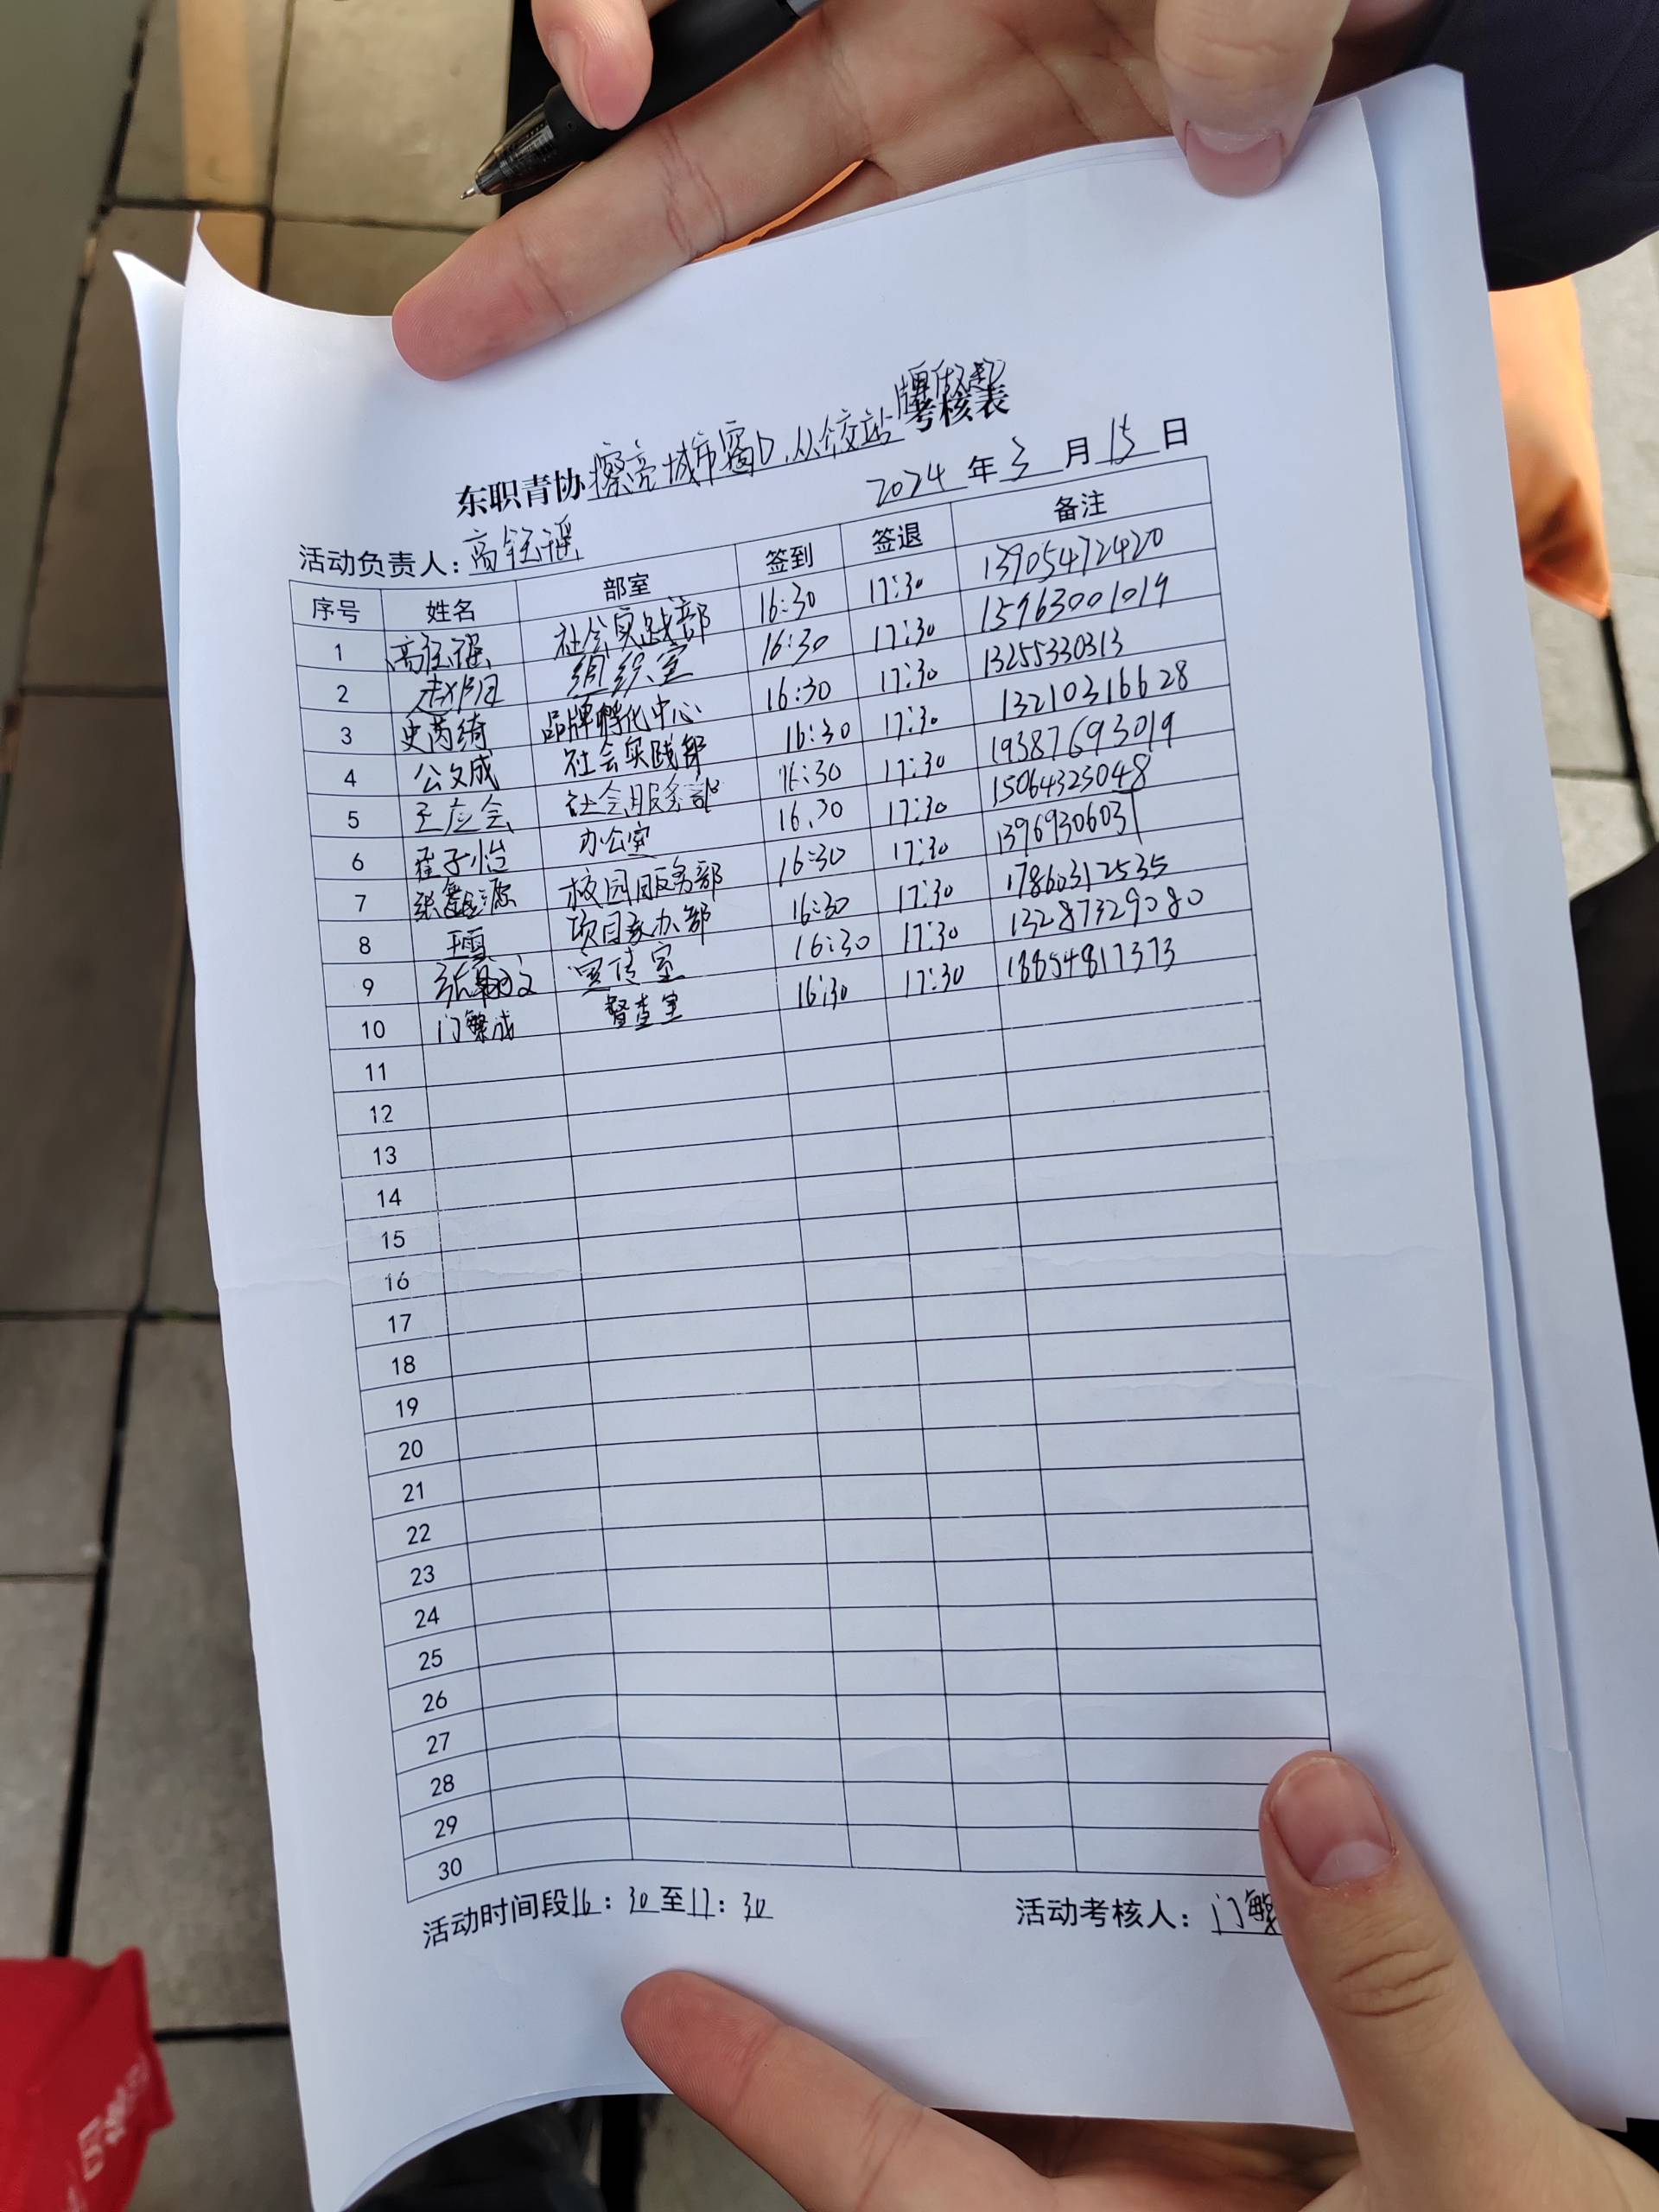 东职青协擦亮城市窗口,从公交站牌做起考核表
2024年3月15日
活动负责人:高钰瑶
序号 姓名 部室 签到 签退 备注
1 高钰瑶 社会实践部 16:30 17:30 13905472420
2 赵阳 组织室 16:30 17:30 15963001019
3 史芮绮 品牌孵化中心 16:30 17:30 13255330313
4 公文成 社会实践部 16:30 17:30 13210316628
5 王应会 社会服务部 16:30 17:30 19387693019
6 崔子怡 办公室 16:30 17:30 15064325048
7 张鑫源 校园服务部 16:30 17:30 13969306031
8 王雪 项目承办部 16:30 17:30 17860312535
9 宣传室 16:30 17:30 13287329080
10 门繁成 督查室 16:30 17:30 18854817373
11
12
13
14
15
16
17
18
19
20
21
22
23
24
25
26
27
28
29
30
活动时间段16:30至17:30 活动考核人:门繁